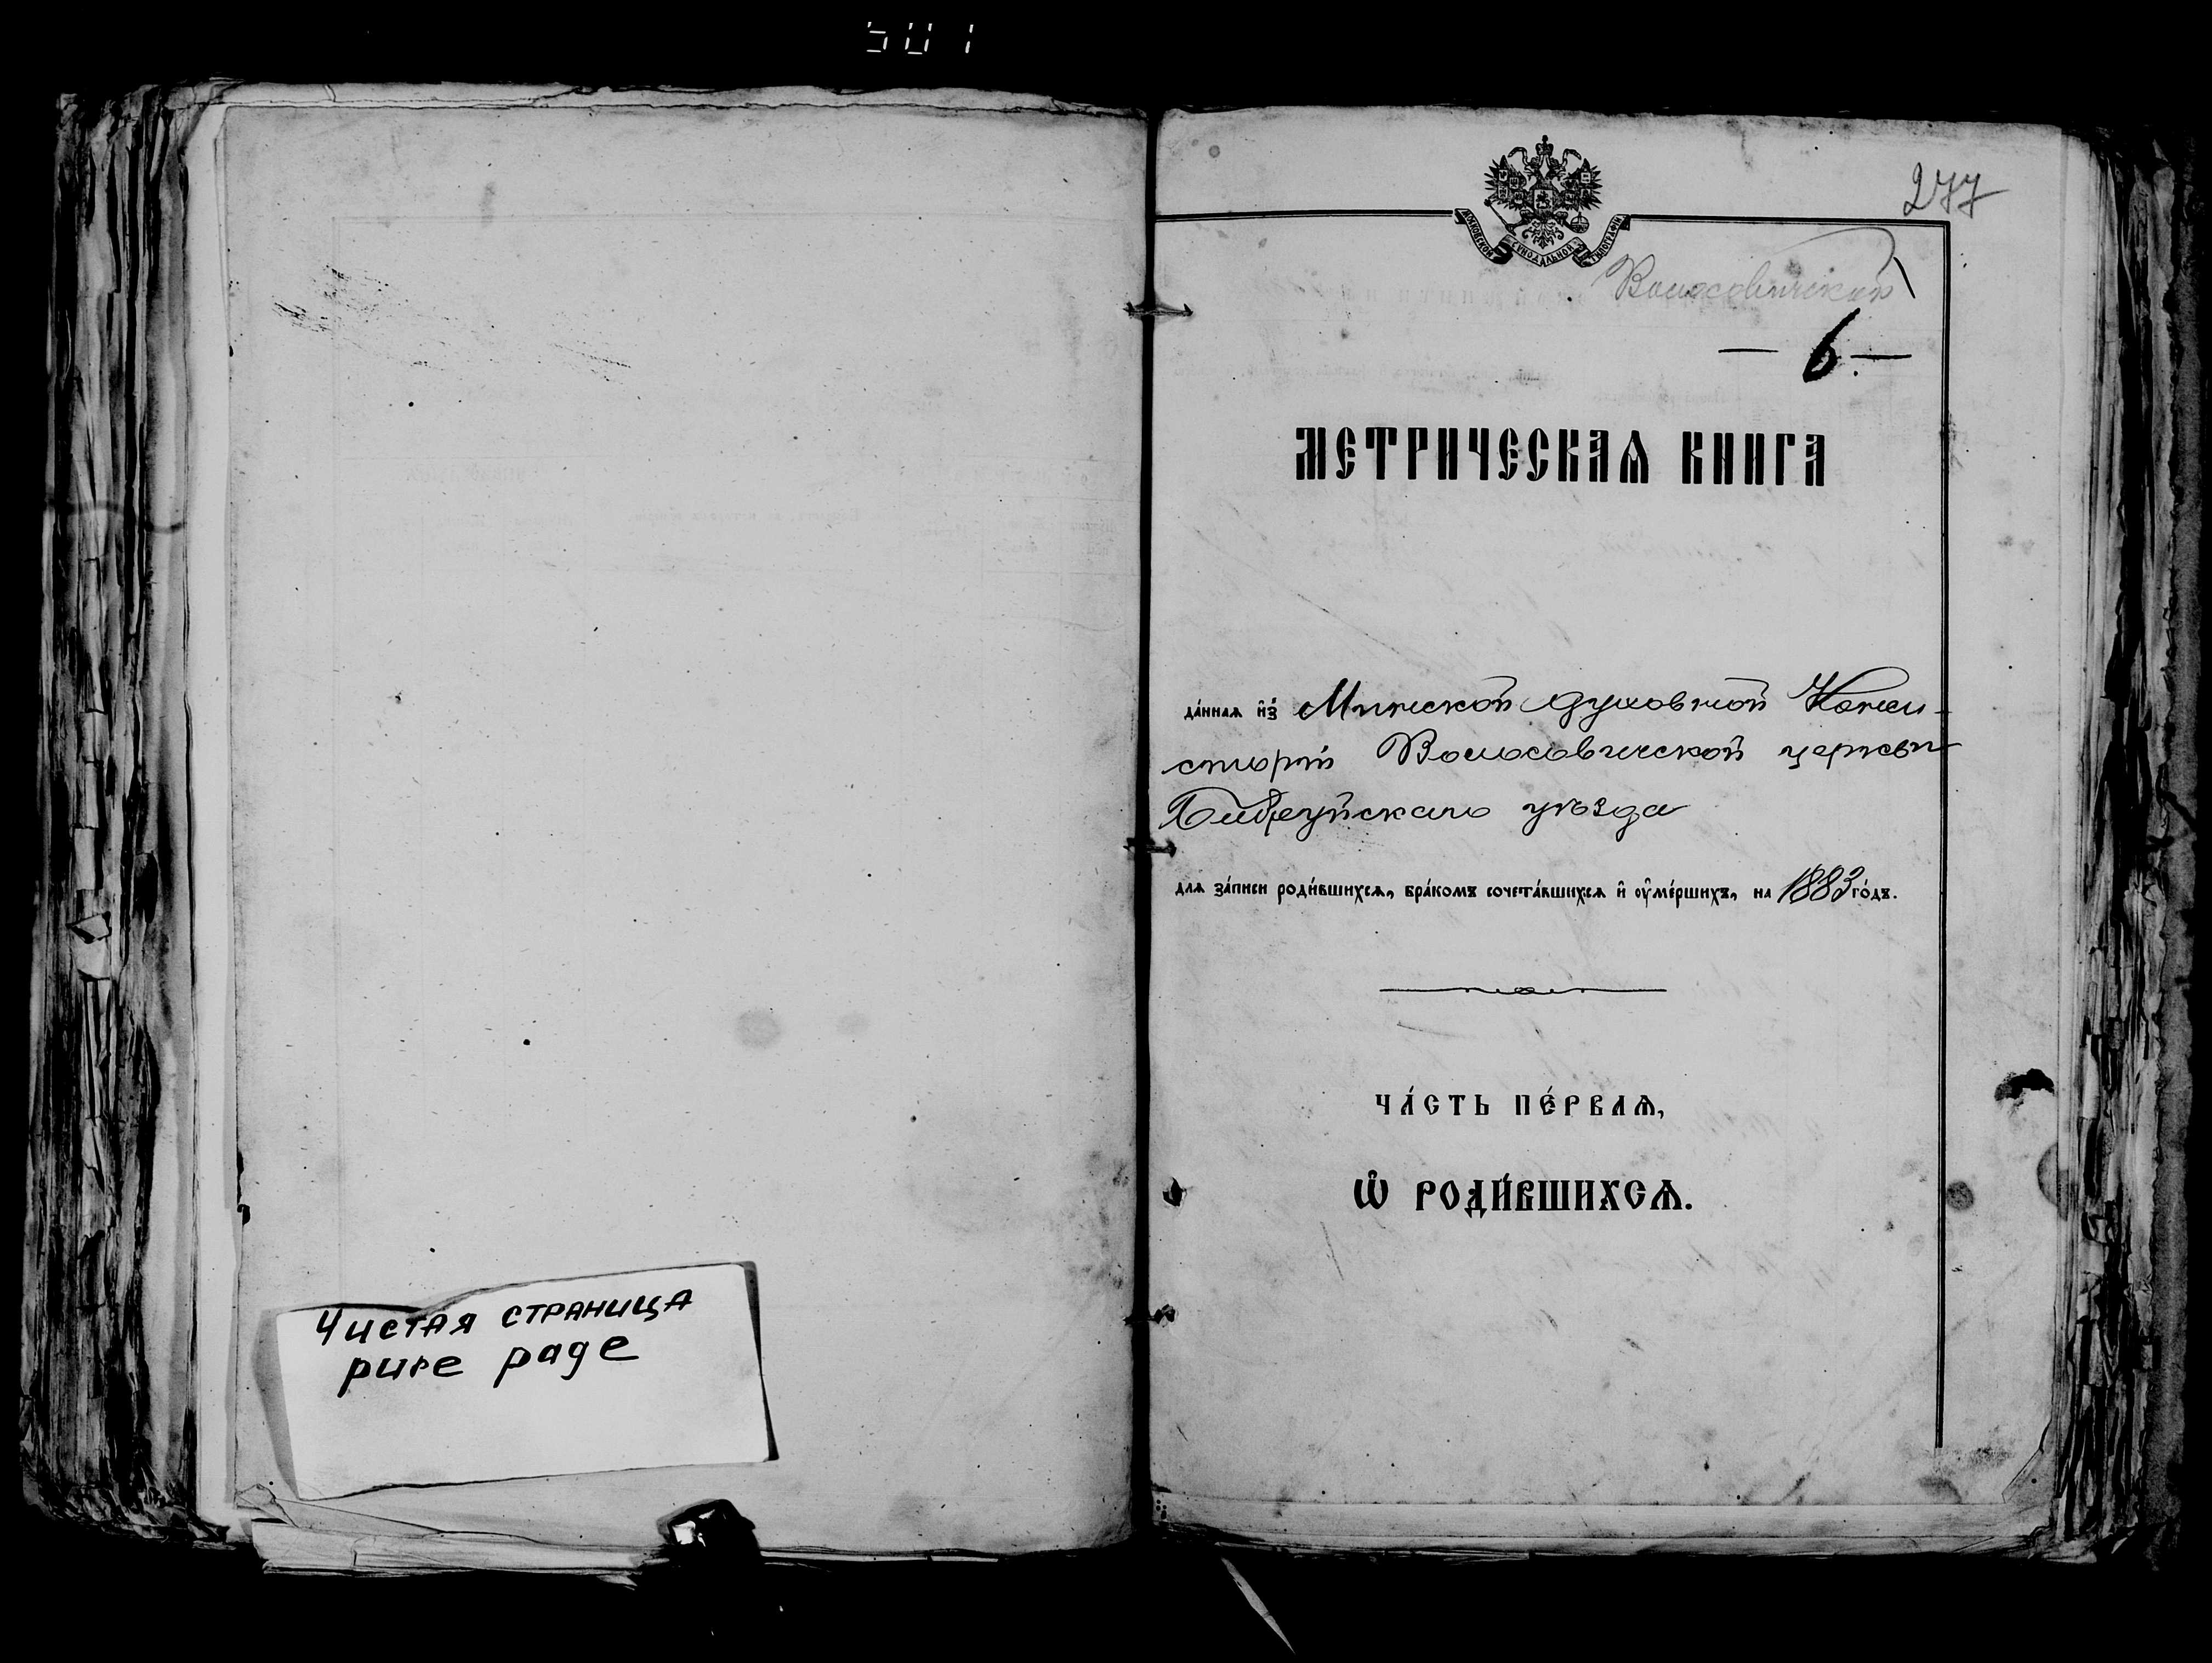 501
Чистая страница
pure page
277
МОСКОВСКОЙ СѴНОДАЛЬНОЙ ТИПОГРАФІИ
Волосовичской
— 6. —
МЕТРИЧЕСКАѦ КНИГА
да́ннаѧ и҆з̾ Минской духовной Конси-
сторіи Волосовичской церкви
Бобруйскаго уѣзда
для за́писи роди́вшихсѧ, бра́комъ сочета́вшихсѧ и҆ ᲂу҆ме́ршихъ, на 1883 го́дъ.
ЧА́СТЬ ПЕ́РВАѦ,
Ѽ РОДИ́ВШИХСѦ.